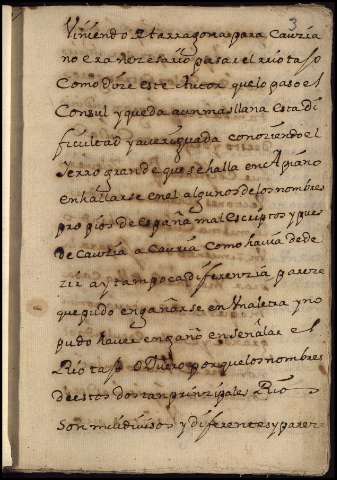 3
Viniendo de tarragona para Cauria
no era nezesario pasar el rio taJo
Como dize este Autor que lo paso el
Consul y queda aun mas llana esta di
ficultad y averiguada conoziendo el
Yerro grande que se halla en Apiano
en hallarse en el algunos de los nombres
propios de España mal escriptos y pues
de Cauzia a Cauria como havia de de
zir ay tan poca diferenzia pareze
que pudo engañarse en Una letra y no
pudo haver engaño en señalar el
Rio taJo o Duero porque los nombres
de estos dos tan prinzipales Rios
son mui diuisos y diferentes y pareze